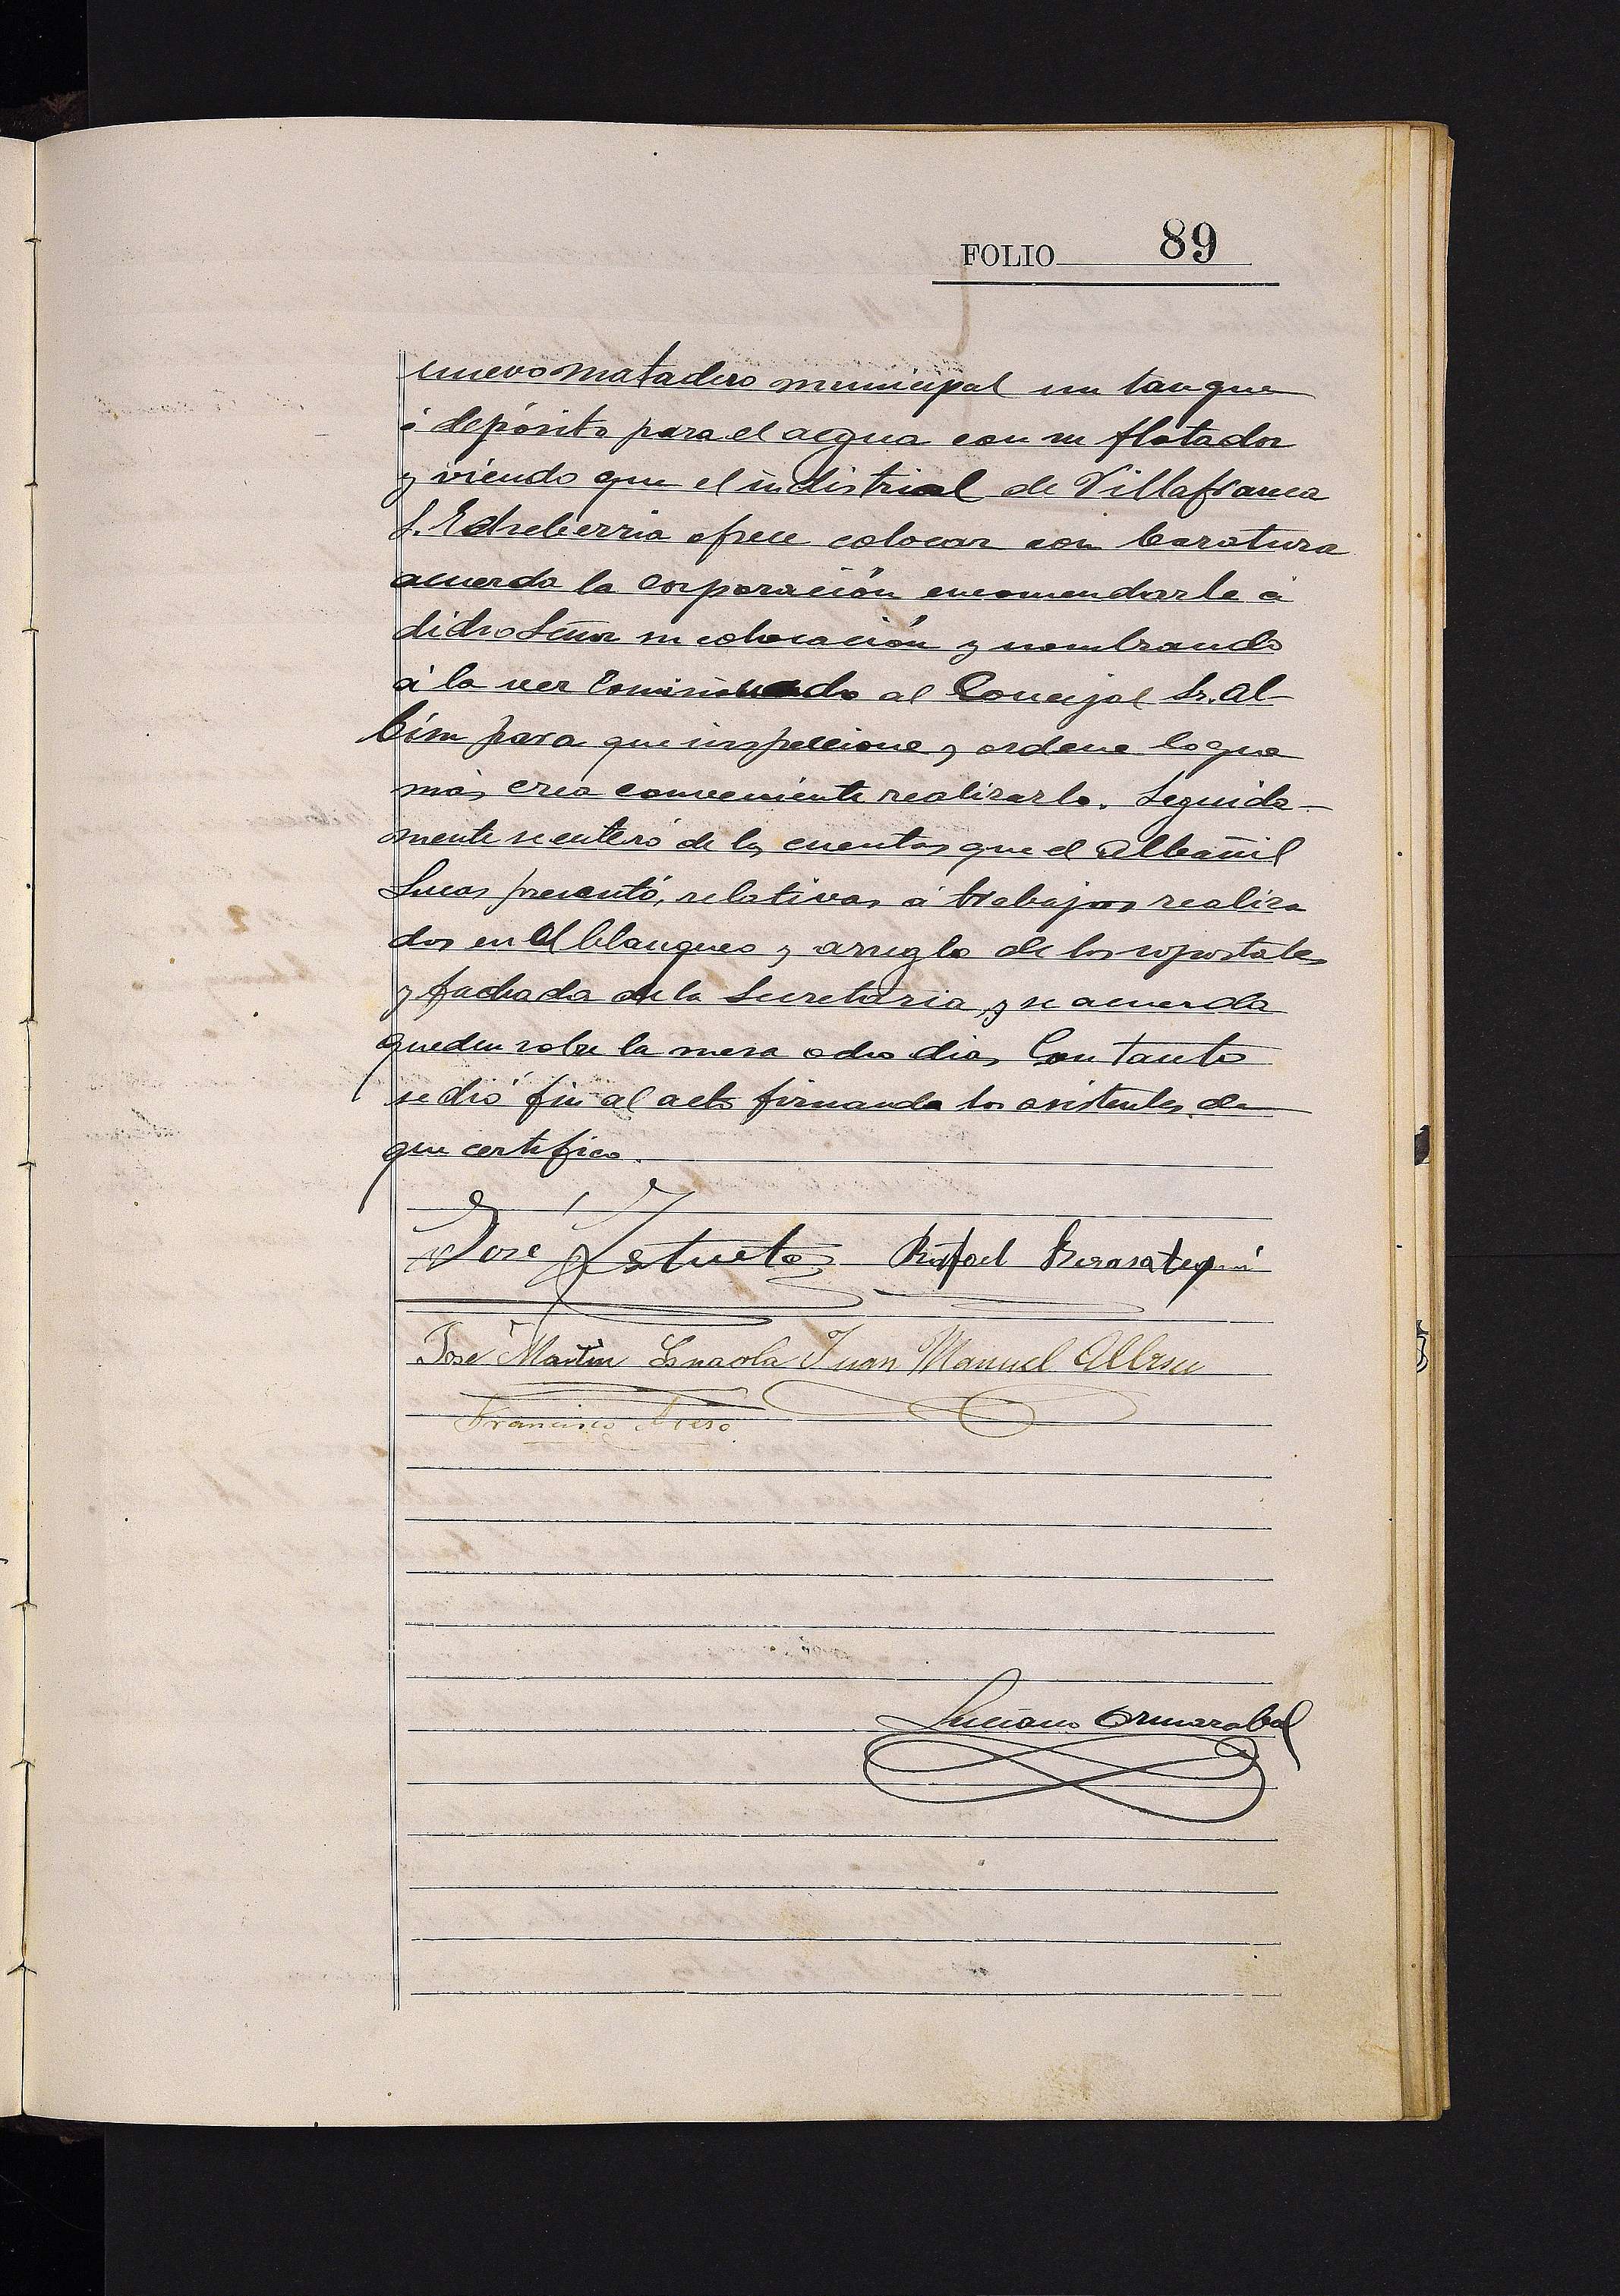 FOLIO 89
nuevo matadero municipal un tanque
ó depósito para el agua con su flotador
y viendo que el industrial de Villafranca
S. Echeberria ofrece colocar con baratura
acuerda la Corporación encomendarle á
dicho Señor su colocación y nombrando
á la vez Comisionado al Concejal Sr. Al-
bisu para que inspeccione y ordene lo que
más crea conveniente realizarlo. Seguida-
mente se enteró de las cuentas que el Albañil
Lucas presentó, relativas á trabajos realiza
dos en el blanqueo y arreglo de los soportales
y fachada de la Secretaria, y se acuerda
queden sobre la mesa ocho dias. Con tanto
se dió fin al acto firmando los asistentes de
que certifico.
José Rafael Berasategui
José Martin Juan Manuel Albisu
Francisco
Luciano Ormazabal